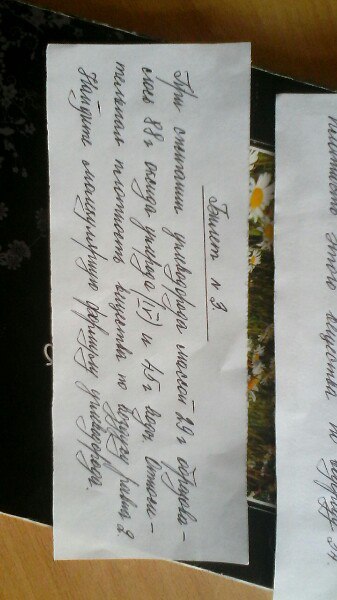 Билет № 9
При сжигании углеводорода массой 29 г образова-
лось 88 г оксида углерода (IV) и 45 г воды. Относи-
тельная плотность вещества по воздуху равна 2.
Найдите молекулярную формулу углеводорода.
плотность этого вещества по воздуху